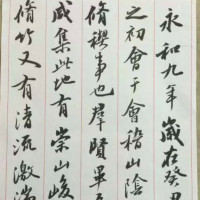 永和九年歲在癸丑
之初會于會稽山陰
脩禊事也羣賢畢至
咸集此地有崇山峻
脩竹又有清流激湍